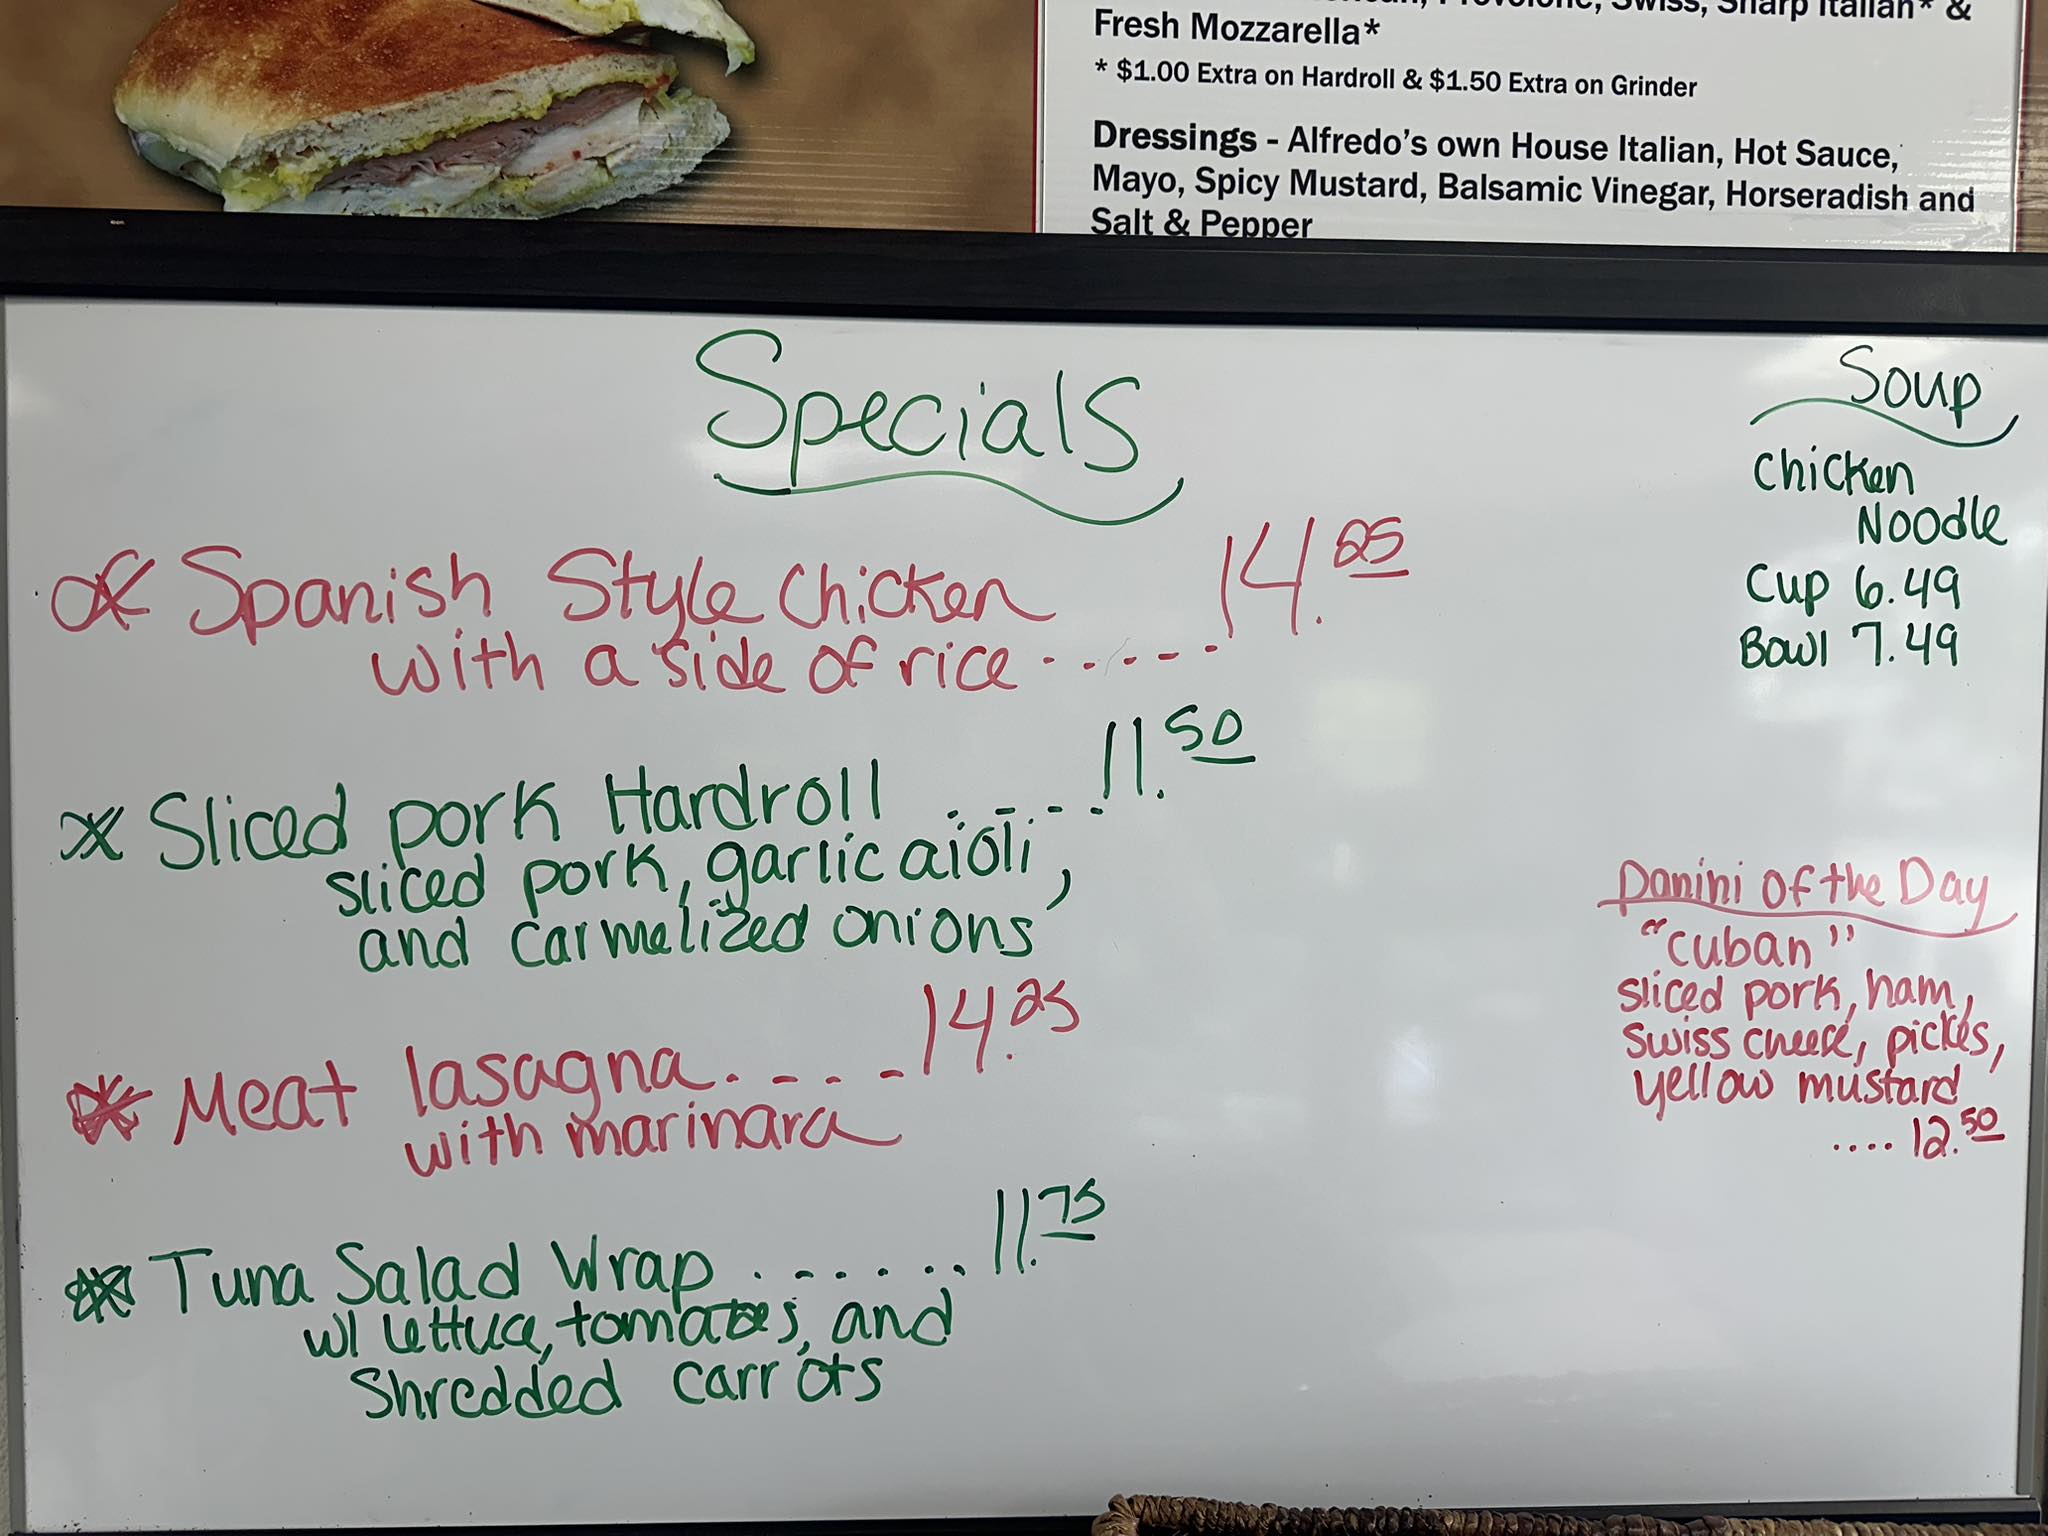 Provolone, Swiss, Sharp Italian* &
Fresh Mozzarella*
* $1.00 Extra on Hardroll & $1.50 Extra on Grinder
Dressings - Alfredo's own House Italian, Hot Sauce,
Mayo, Spicy Mustard, Balsamic Vinegar, Horseradish and
Salt & Pepper
Specials
Spanish Style Chicken
with a side of rice ...... 14.25
Sliced pork Hardroll ..... 11.50
sliced pork, garlic aioli,
and carmelized onions
Meat lasagna.... 14.25
with marinara
Tuna Salad Wrap ...... 11.75
w/ lettuce, tomatoes, and
Shredded carrots
Soup
Chicken
Noodle
Cup 6.49
Bowl 7.49
Panini of the Day
"Cuban"
sliced pork, ham,
swiss cheese, pickles,
yellow mustard
.... 12.50